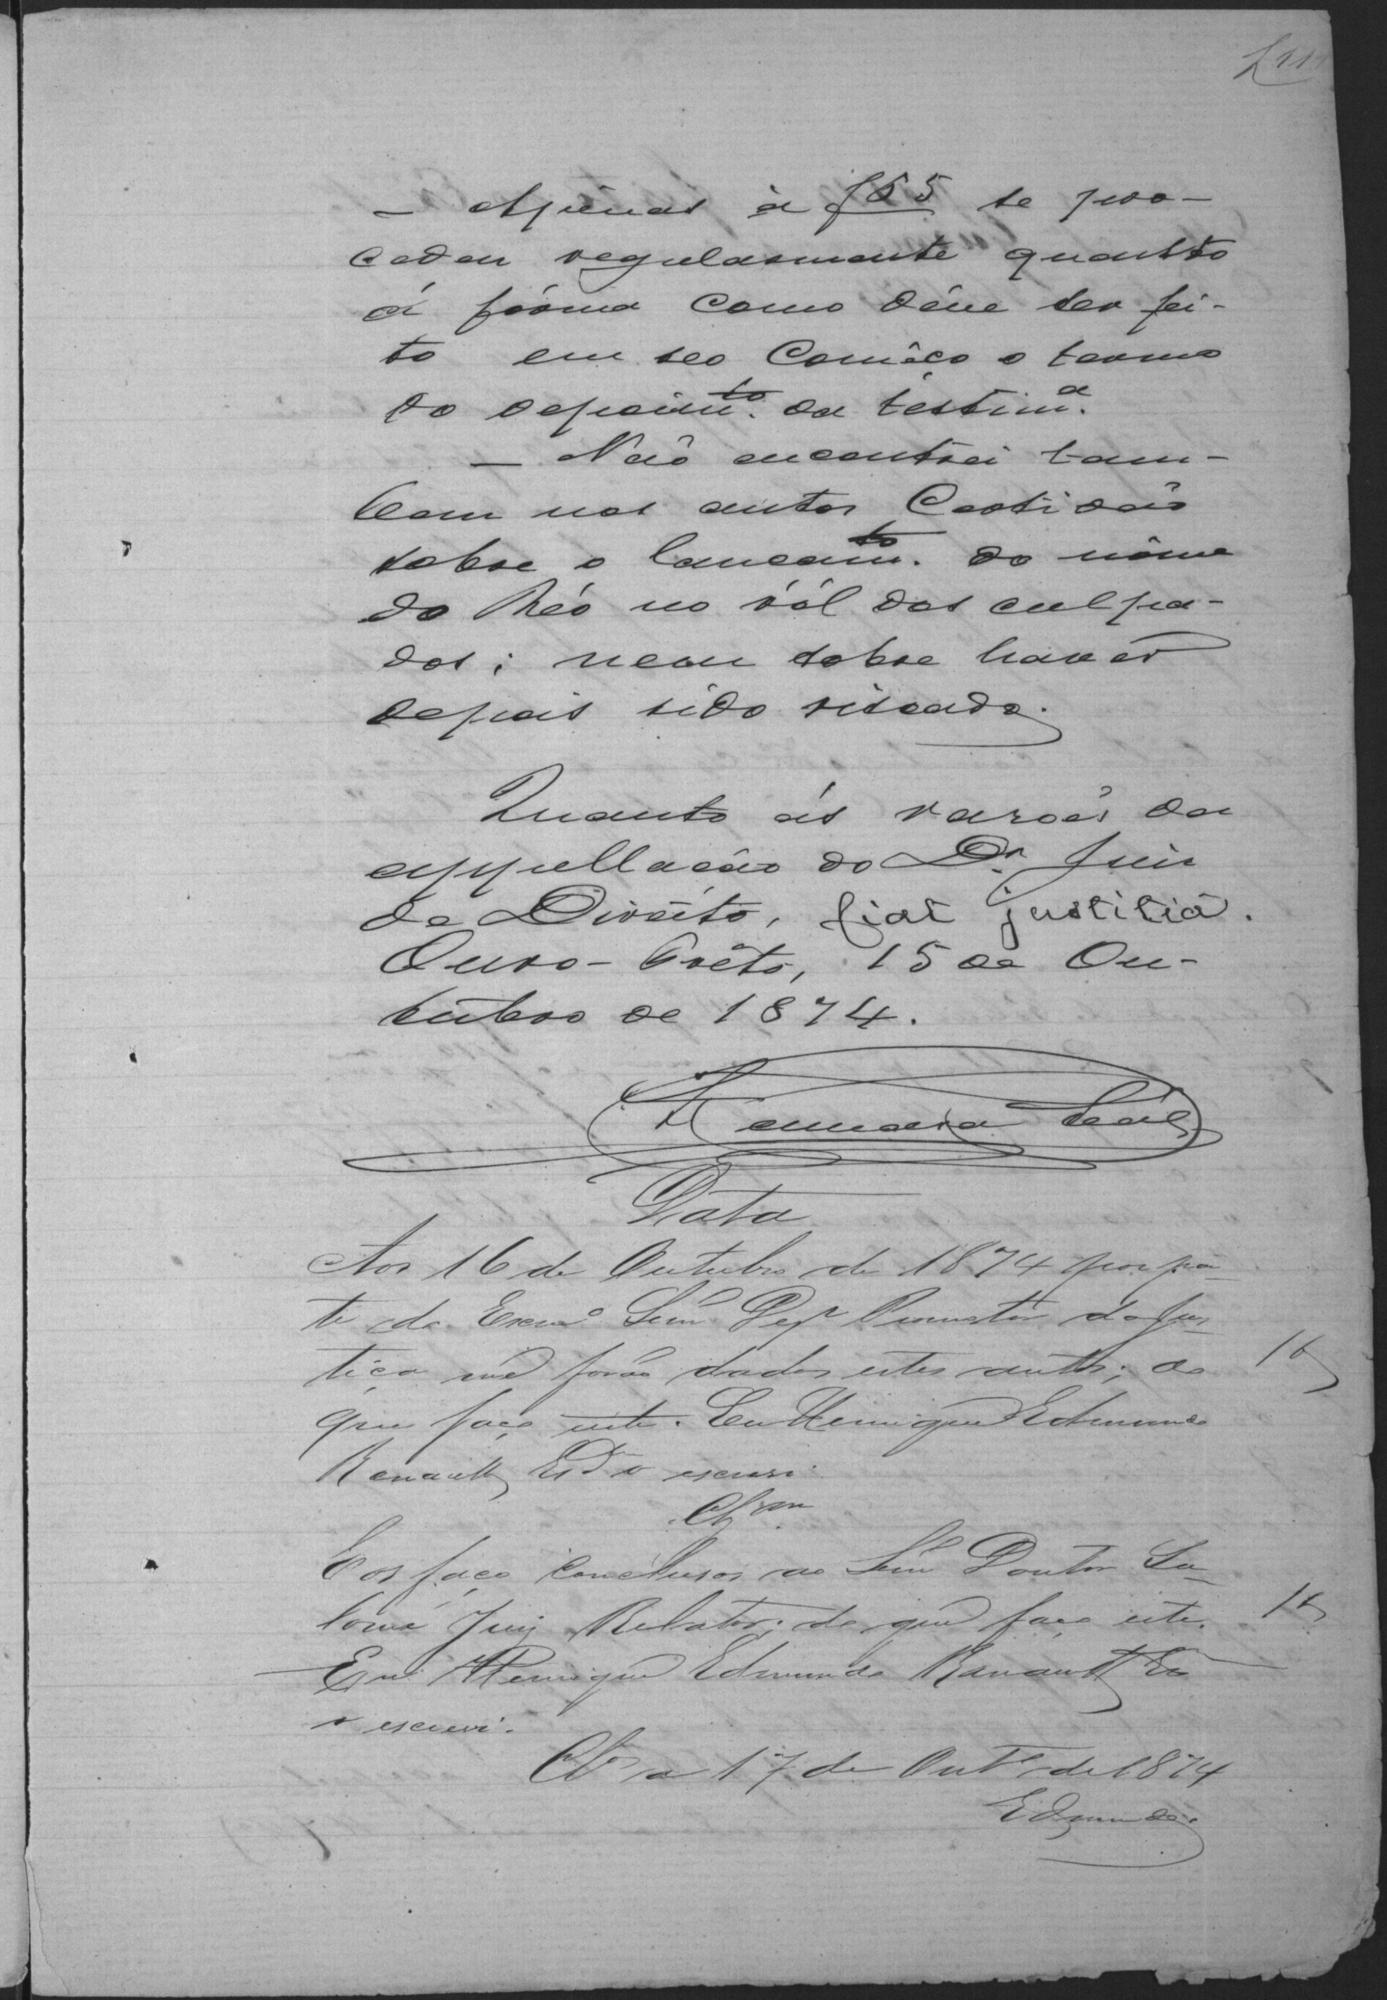 — Apénas à f 55 se pro-
cedeu regularmente quanto
á fórma como déve ser fei-
to em seo Comêço o termo
do depoim.to da testim.a
— Não encontrei tam-
bem nos autos Certidão
sobre o lançam.to do nôme
do Réo no ról dos culpa-
dos; nem sobre haver
depois sido riscado.
Quanto ás razões da
appellação do Dr. Juiz
de Direito, fiat justitia.
Ouro-Prêto, 15 de Ou-
tubro de 1874.
Leál
Data
Aos 16 de Outubro de 1874 por pa-
te do Exmo Senr Dezr Promotor da Jus-
tiça me forão dados estes autos; do
que faço este. Eu Henrique Edmundo
Renault, o escrevi.
Clsm
E os faço conclusos ao Senr Doutor
Juiz Relator; do que faço este.
Eu Henrique Edmundo Renault
o escrevi.
Cls a 17 de Outº de 1874
Edmundo